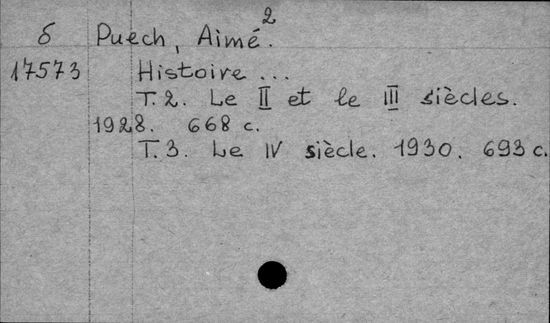 б Puech, Aimé.²
17573 Histoire ...
T. 2. Le II et le III siècles.
1928. 668 c.
T. 3. Le IV siècle. 1930. 693 c.